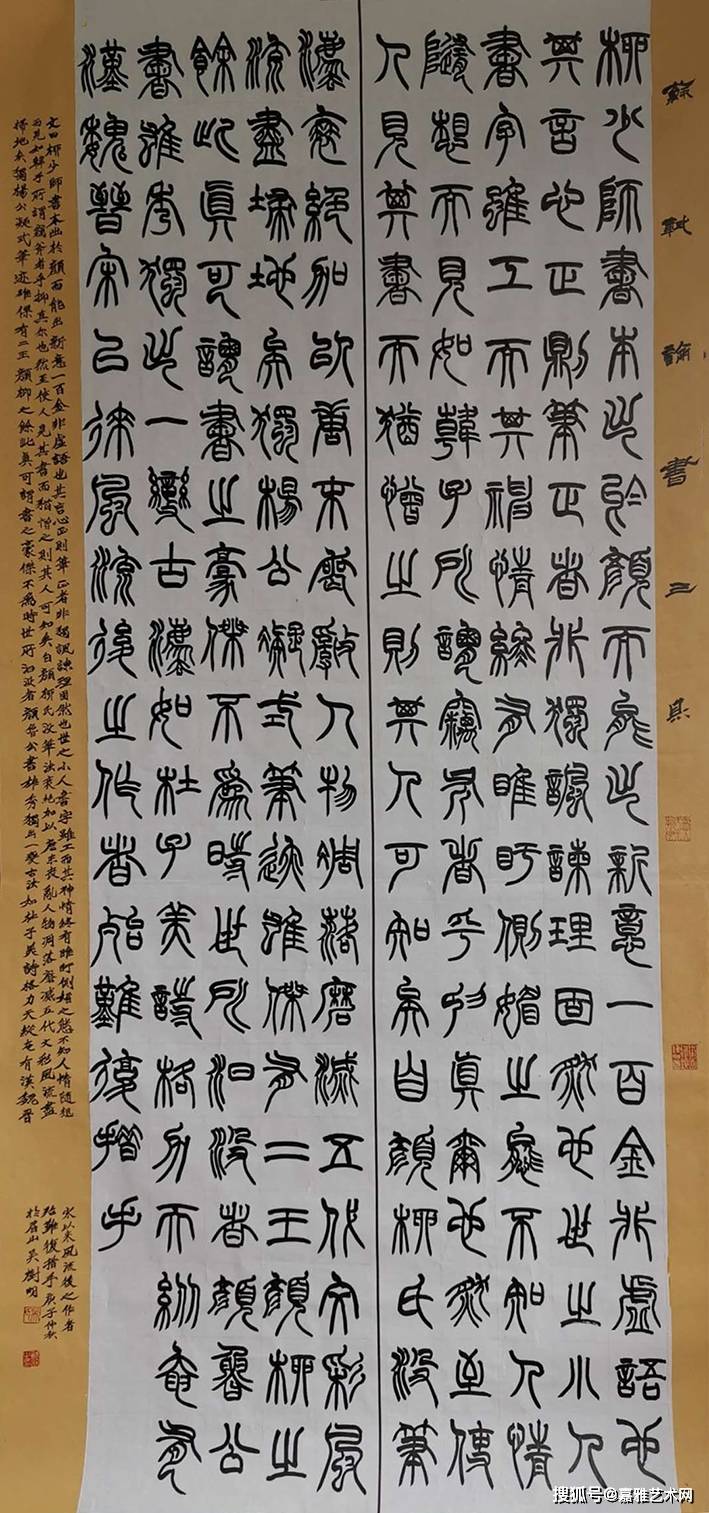 蘇軾論書三
柳少師書本出於顏而能出新意一百金非虛語也
其言心正則筆正者非獨諷諫理固然也世之小人
書字雖工而其神情終有睢盱側媚之態不知人情
隨想而見如韓子所謂竊斧者乎抑真爾也然至使
人見其書而猶憎之則其人可知矣自顏柳氏沒筆
灋衰絕加以唐末喪亂人物凋落磨滅五代文彩風
流盡掃地矣獨楊公凝式筆迹雖傑有二王顏柳之
餘此真可謂書之豪傑不為時世所汩沒者顏魯公
書雄秀獨出一變古灋如杜子美詩格力天縱奄有
漢魏晉宋已徠風流後之作者殆難復措手
文曰柳少師書本出於顏而能出新意一百金非虛語也其言心正則筆正者非獨諷諫理固然也世之小人書字雖工而其神情終有睢盱側媚之態不知人情隨想
而見如韓子所謂竊斧者乎抑真尔也然至使人見其書而猶憎之則其人可知矣自顏柳氏改筆法衰絕加以唐末喪亂人物凋落磨滅五代文彩風流盡
掃地矣獨楊公凝式筆迹雖傑有二王顏柳之餘此真可謂書之豪傑不為時世所汩沒者顏魯公書雄秀獨出一變古法如杜子美詩格力天縱奄有漢魏晉
宋以來風流後之作者
殆難復措手庚子仲秋
於眉山吳樹明
搜狐号@嘉雅艺术网